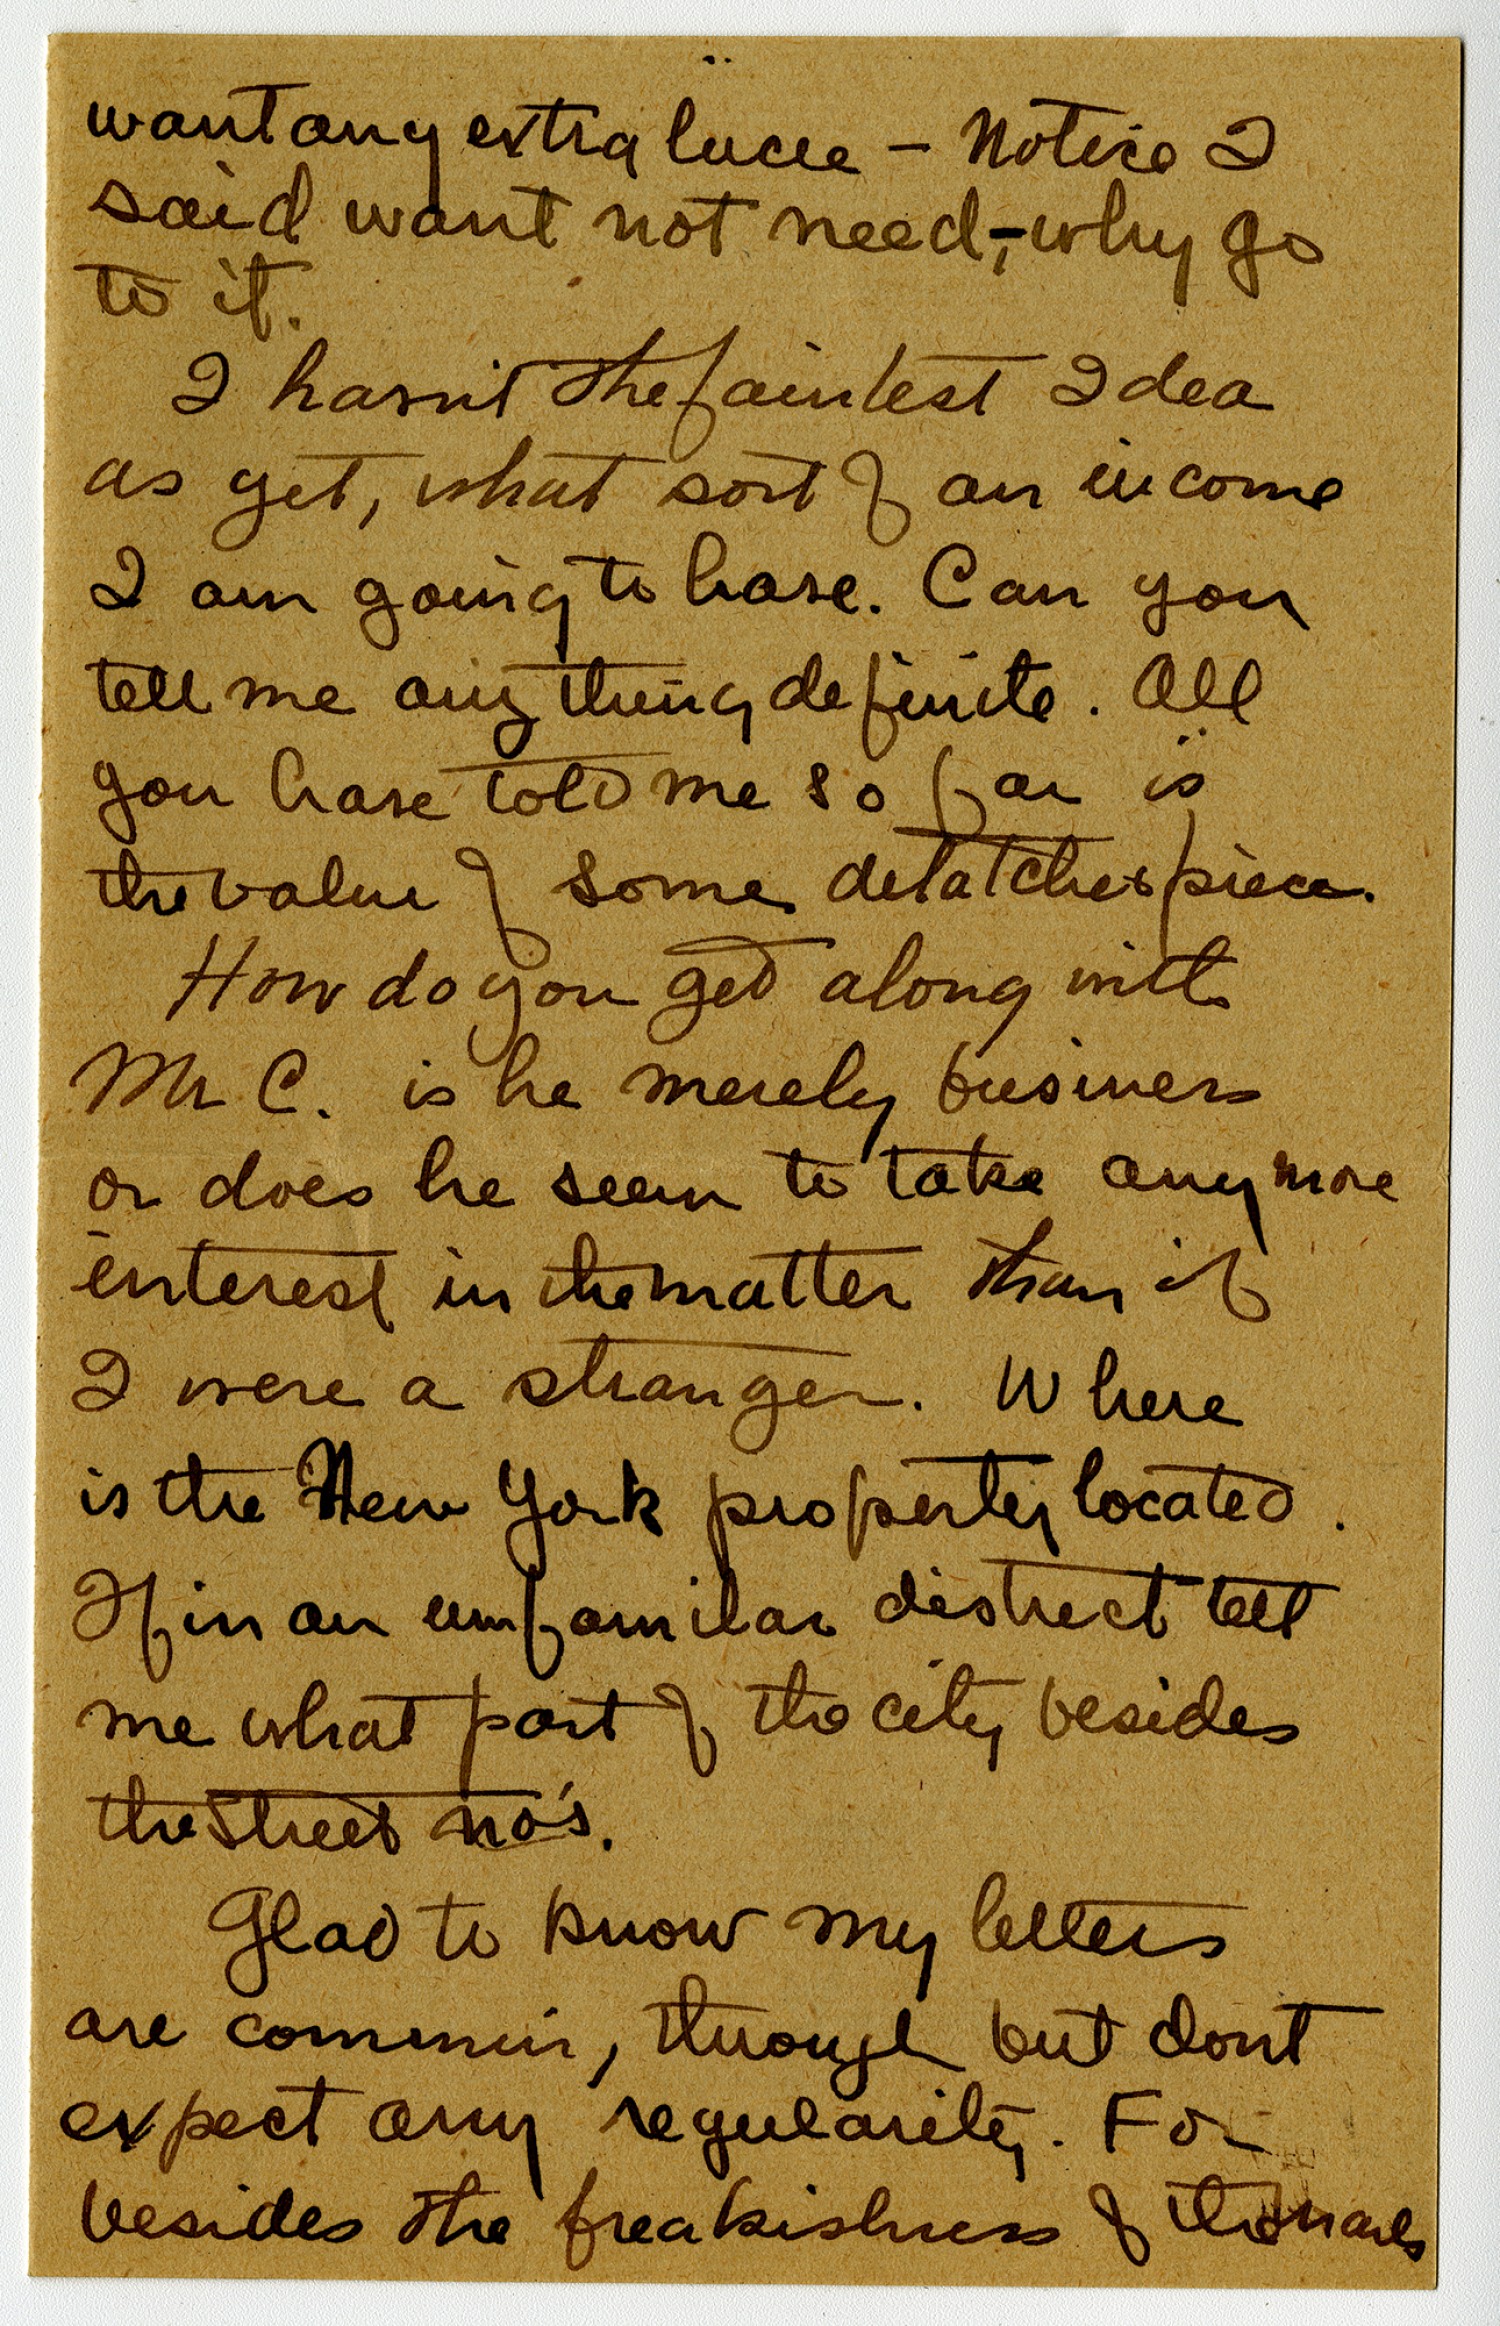 want any extra lucre – Notice I
said want not need, – why go
to it.
I hasn't the faintest Idea
as yet, what sort of an income
I am going to have. Can you
tell me anything definite. All
you have told me so far is
the value of some detatched piece.
How do you get along with
Mr C. is he merely business
or does he seem to take any more
interest in the matter than if
I were a stranger. Where
is the New York property located.
If in an unfamilar district tell
me what part of the city besides
the street no's.
Glad to know my letters
are commin, through but dont
expect any regularity. For
besides the freakishness of the mails